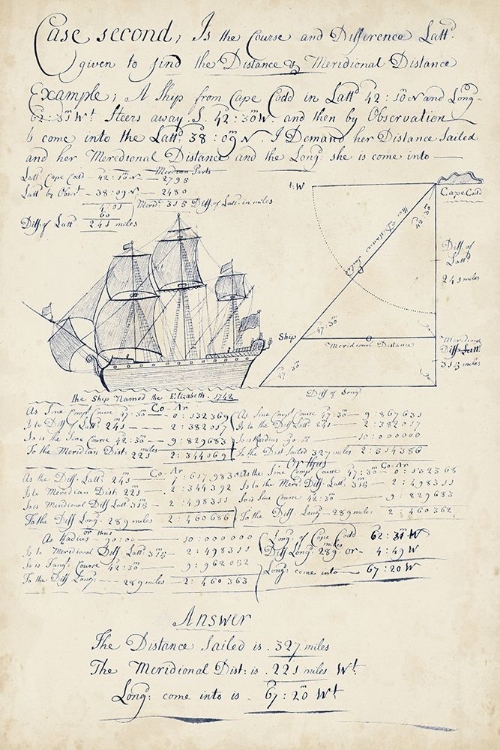 Case second, Is the Course and Difference Latt:
given to find the Distance & Meridional Distance
Example, A Ship from Cape Codd in Latt: 42:10N and Long:
62:31Wt Steers away S. 42:30W. and then by Observation
Is come into the Latt: 38:09N. I Demand her Distance Sailed
and her Meridional Distance and the Long: she is come into
Latt Cape Codd 42:10N 2798
Latt by Obsert 38:09N 2480
4:01 Merid: 315 Diff of Latt: in miles
60
Diff of Latt 241 miles
W
Cape Codd
the Distance Sailed
42:30
Diff of
Latt:
241 miles
Ship
47:30
Meridional Distance
Meridional
Diff Latt:
315 miles
Diff of Long:
the Ship Named the Elizabeth. 1742
As Sine Compt Course 47:30 Co-Ar 0:132369
Is to Diff Latt: 241 2:382017
So is the Sine Course 42:30 9:829683
To the Meridian Dist: 221 2:344069
As Sine Compt Course 47:30 9:867631
Is to Diff Latt: 241 2:382017
So is Radius 90:00 10:000000
To the Dist Sailed 327 miles 2:514386
Or thus
As the Diff: Latt: 241 Co-Ar 7:617983
Is to Meridian Dist: 221 2:344392
So is Meridional Diff Latt: 315 2:498311
To the Diff Long: 289 miles 2:460686
As the Sine Compt Course 47:30 Co-Ar
Is to Meridional Diff Latt: 315 2:498311
So is Sine Course 42:30 9:829683
To the Diff Long: 289 miles 2:460363
or thus
As Radius 90:00 10:000000
Is to Meridional Diff Latt: 315 2:498311
So is Tang: Course 42:30 9:962052
To the Diff Long: 289 miles 2:460363
Long: of Cape Codd 62:31 W
Diff Long: 289 miles or 4:49 W
Long: come into 67:20 W
Answer
The Distance Sailed is. 327 miles
The Meridional Dist: is. 221 miles Wt
Long: come into is. 67:20 Wt